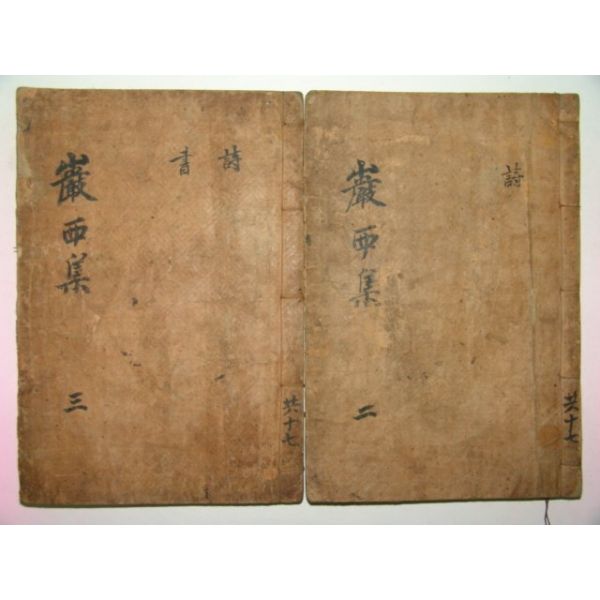 巖西集
三
詩
書
共十七
巖西集
二
詩
共十七